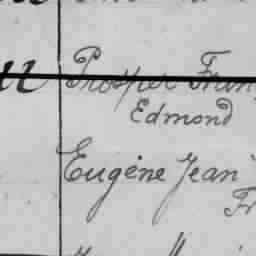 Prosper Fran
Edmond
Eugène Jean
Fr